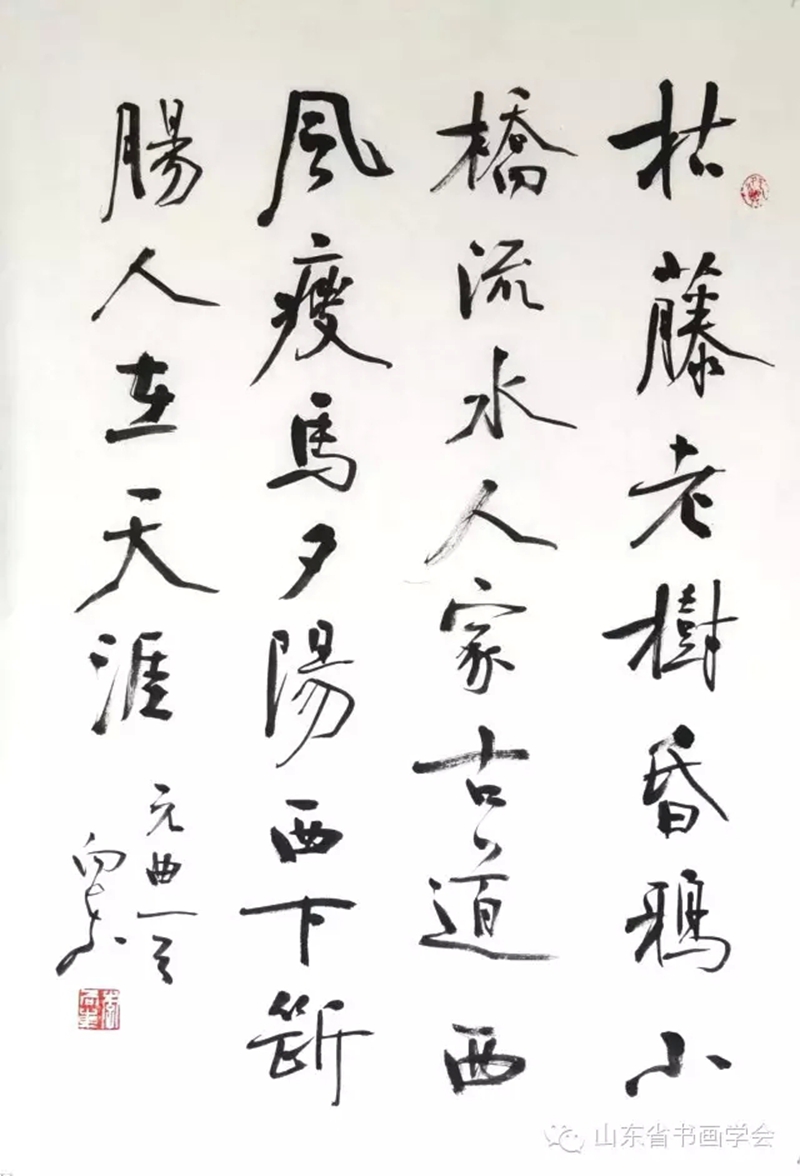 枯藤老樹昏鴉小
橋流水人家古道西
風瘦馬夕陽西下斷
腸人在天涯
元曲一首
向東
山东省书画学会